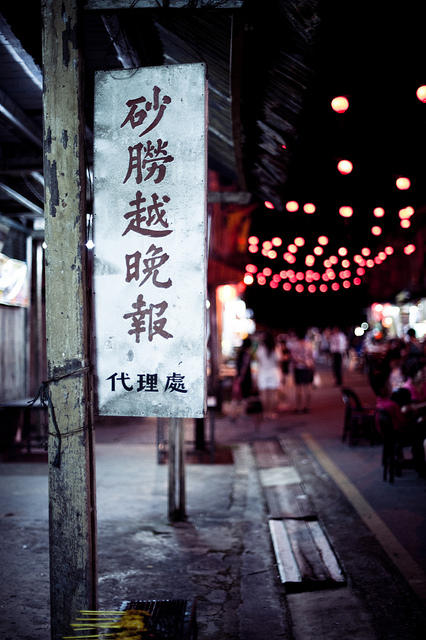 砂朥越晚報
代理處